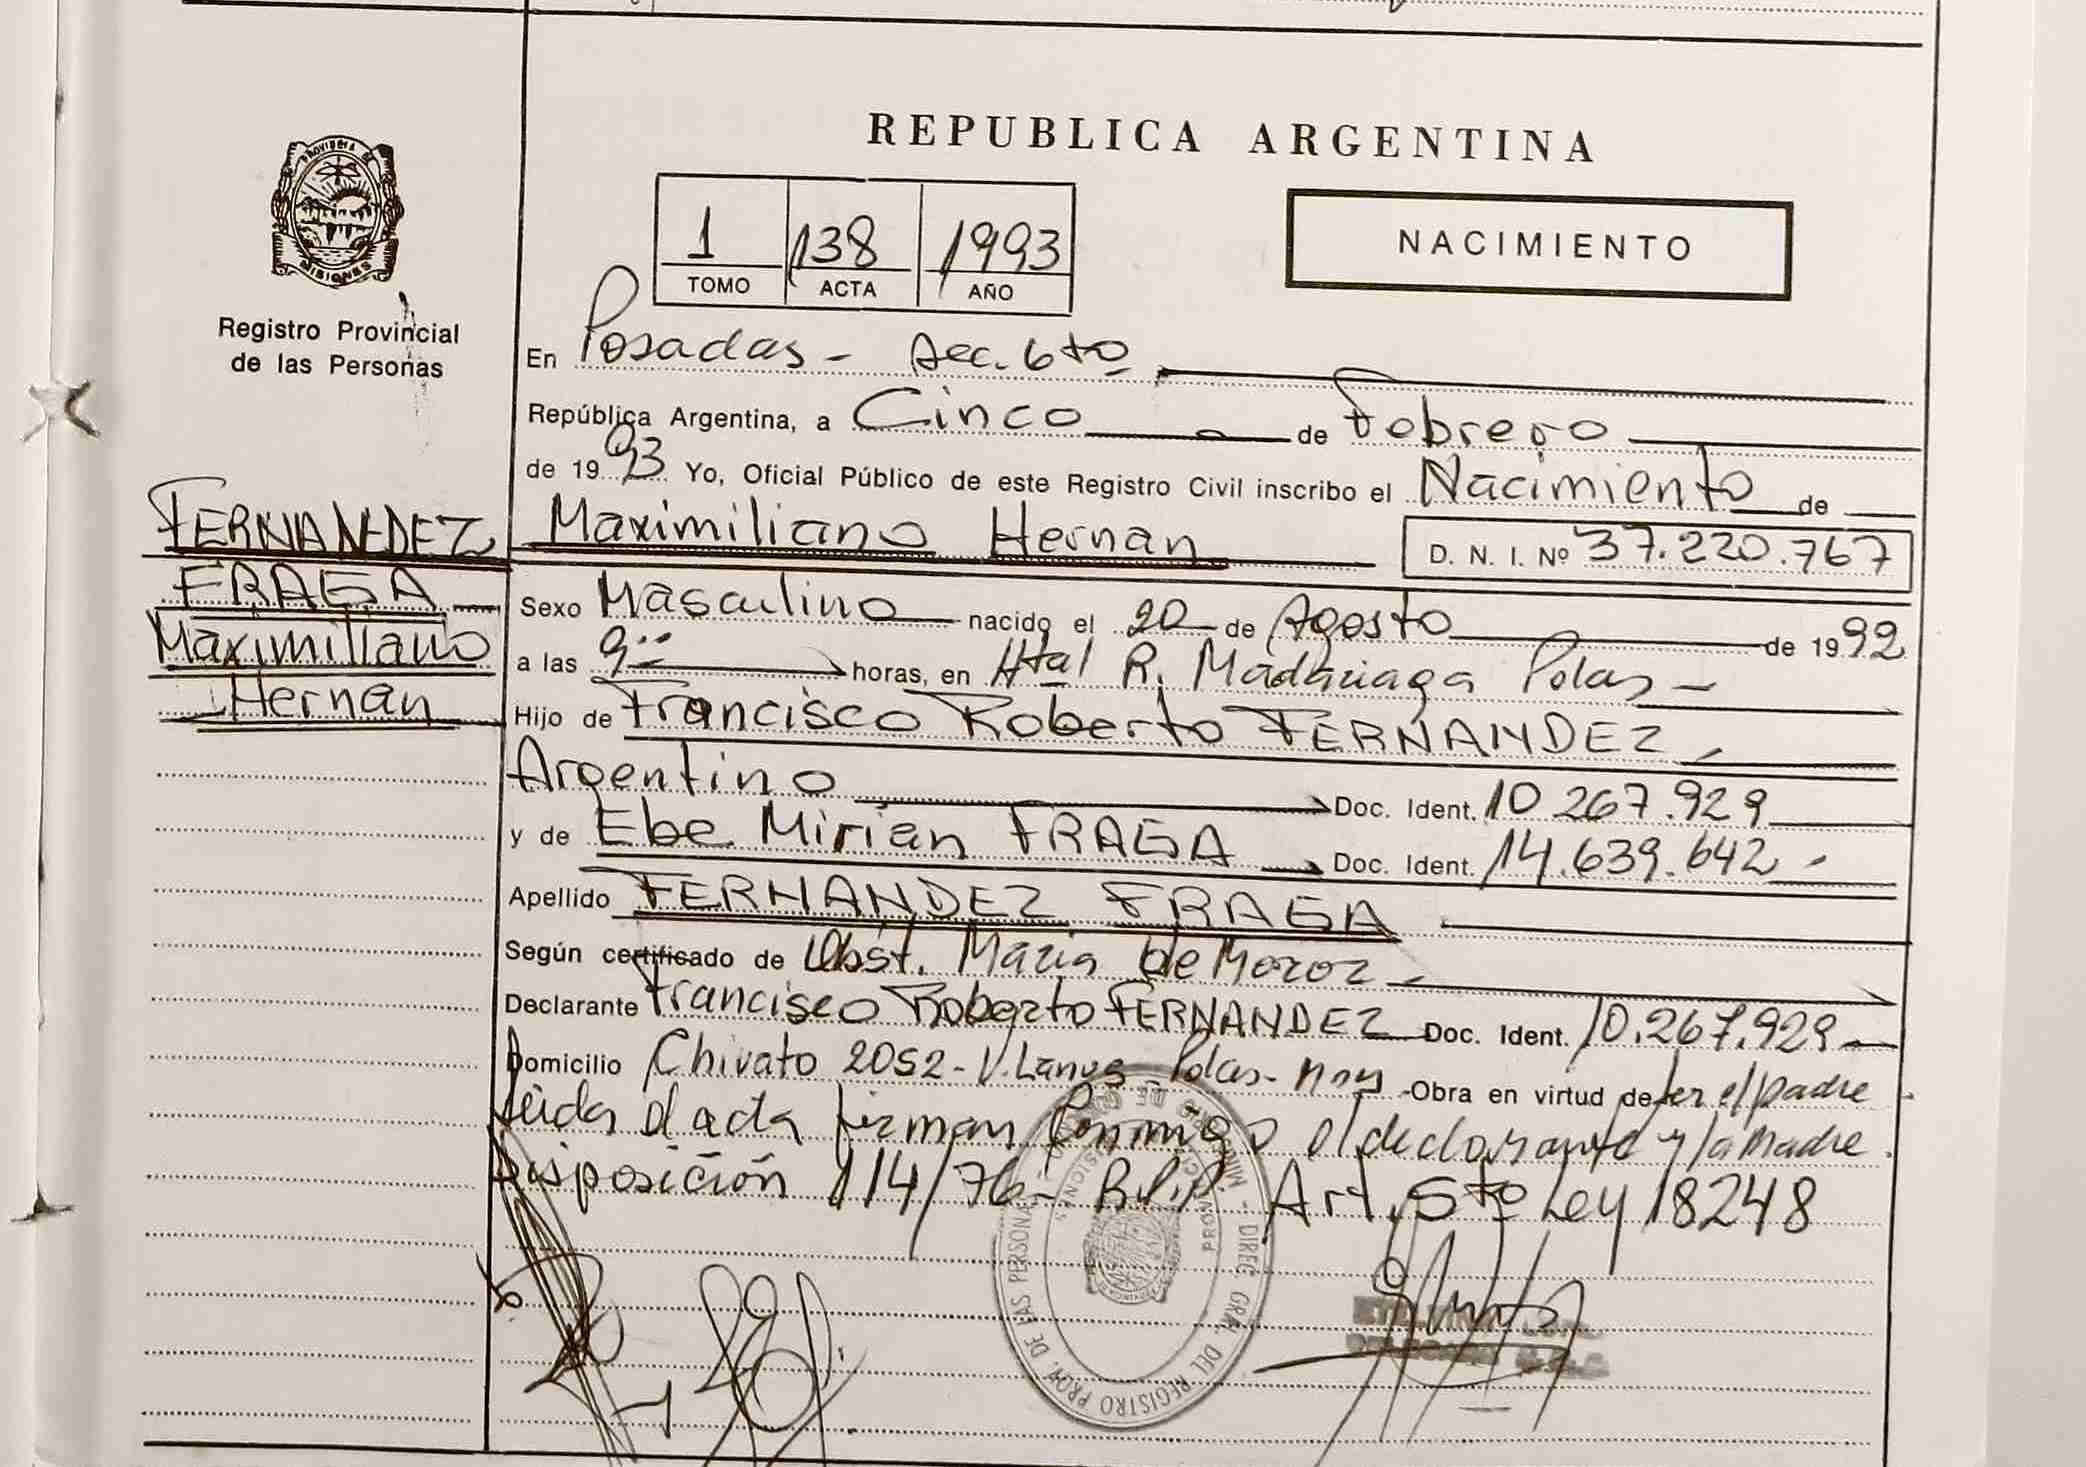 REPUBLICA ARGENTINA
PROVINCIA DE MISIONES
Registro Provincial
de las Personas
1 138 1993
TOMO ACTA AÑO
NACIMIENTO
En Posadas - Sec. 6ta
República Argentina, a Cinco de Febrero
de 1993 Yo, Oficial Público de este Registro Civil inscribo el Nacimiento de
FERNANDEZ
FRAGA
Maximiliano
Hernan
Maximiliano Hernan D. N. I. Nº 37.220.767
Sexo Masculino nacido el 20 de Agosto de 1992
a las 9 horas, en Htal R. Madariaga Pdas -
Hijo de Francisco Roberto FERNANDEZ
Argentino Doc. Ident. 10.267.929
y de Ebe Mirian FRAGA Doc. Ident. 14.639.642 -
Apellido FERNANDEZ FRAGA
Según certificado de Obst. Maria de Moroz -
Declarante Francisco Roberto FERNANDEZ Doc. Ident. 10.267.929
Domicilio Chivato 2052 - V. Lanus Pdas - Mnes - Obra en virtud de ser el padre
Leida el acta firman conmigo el declarante y la madre.
Disposición 114/76 - R.P.P. Art. 5to Ley 18248
DIREC. GRAL. DEL REGISTRO PROV. DE LAS PERSONAS